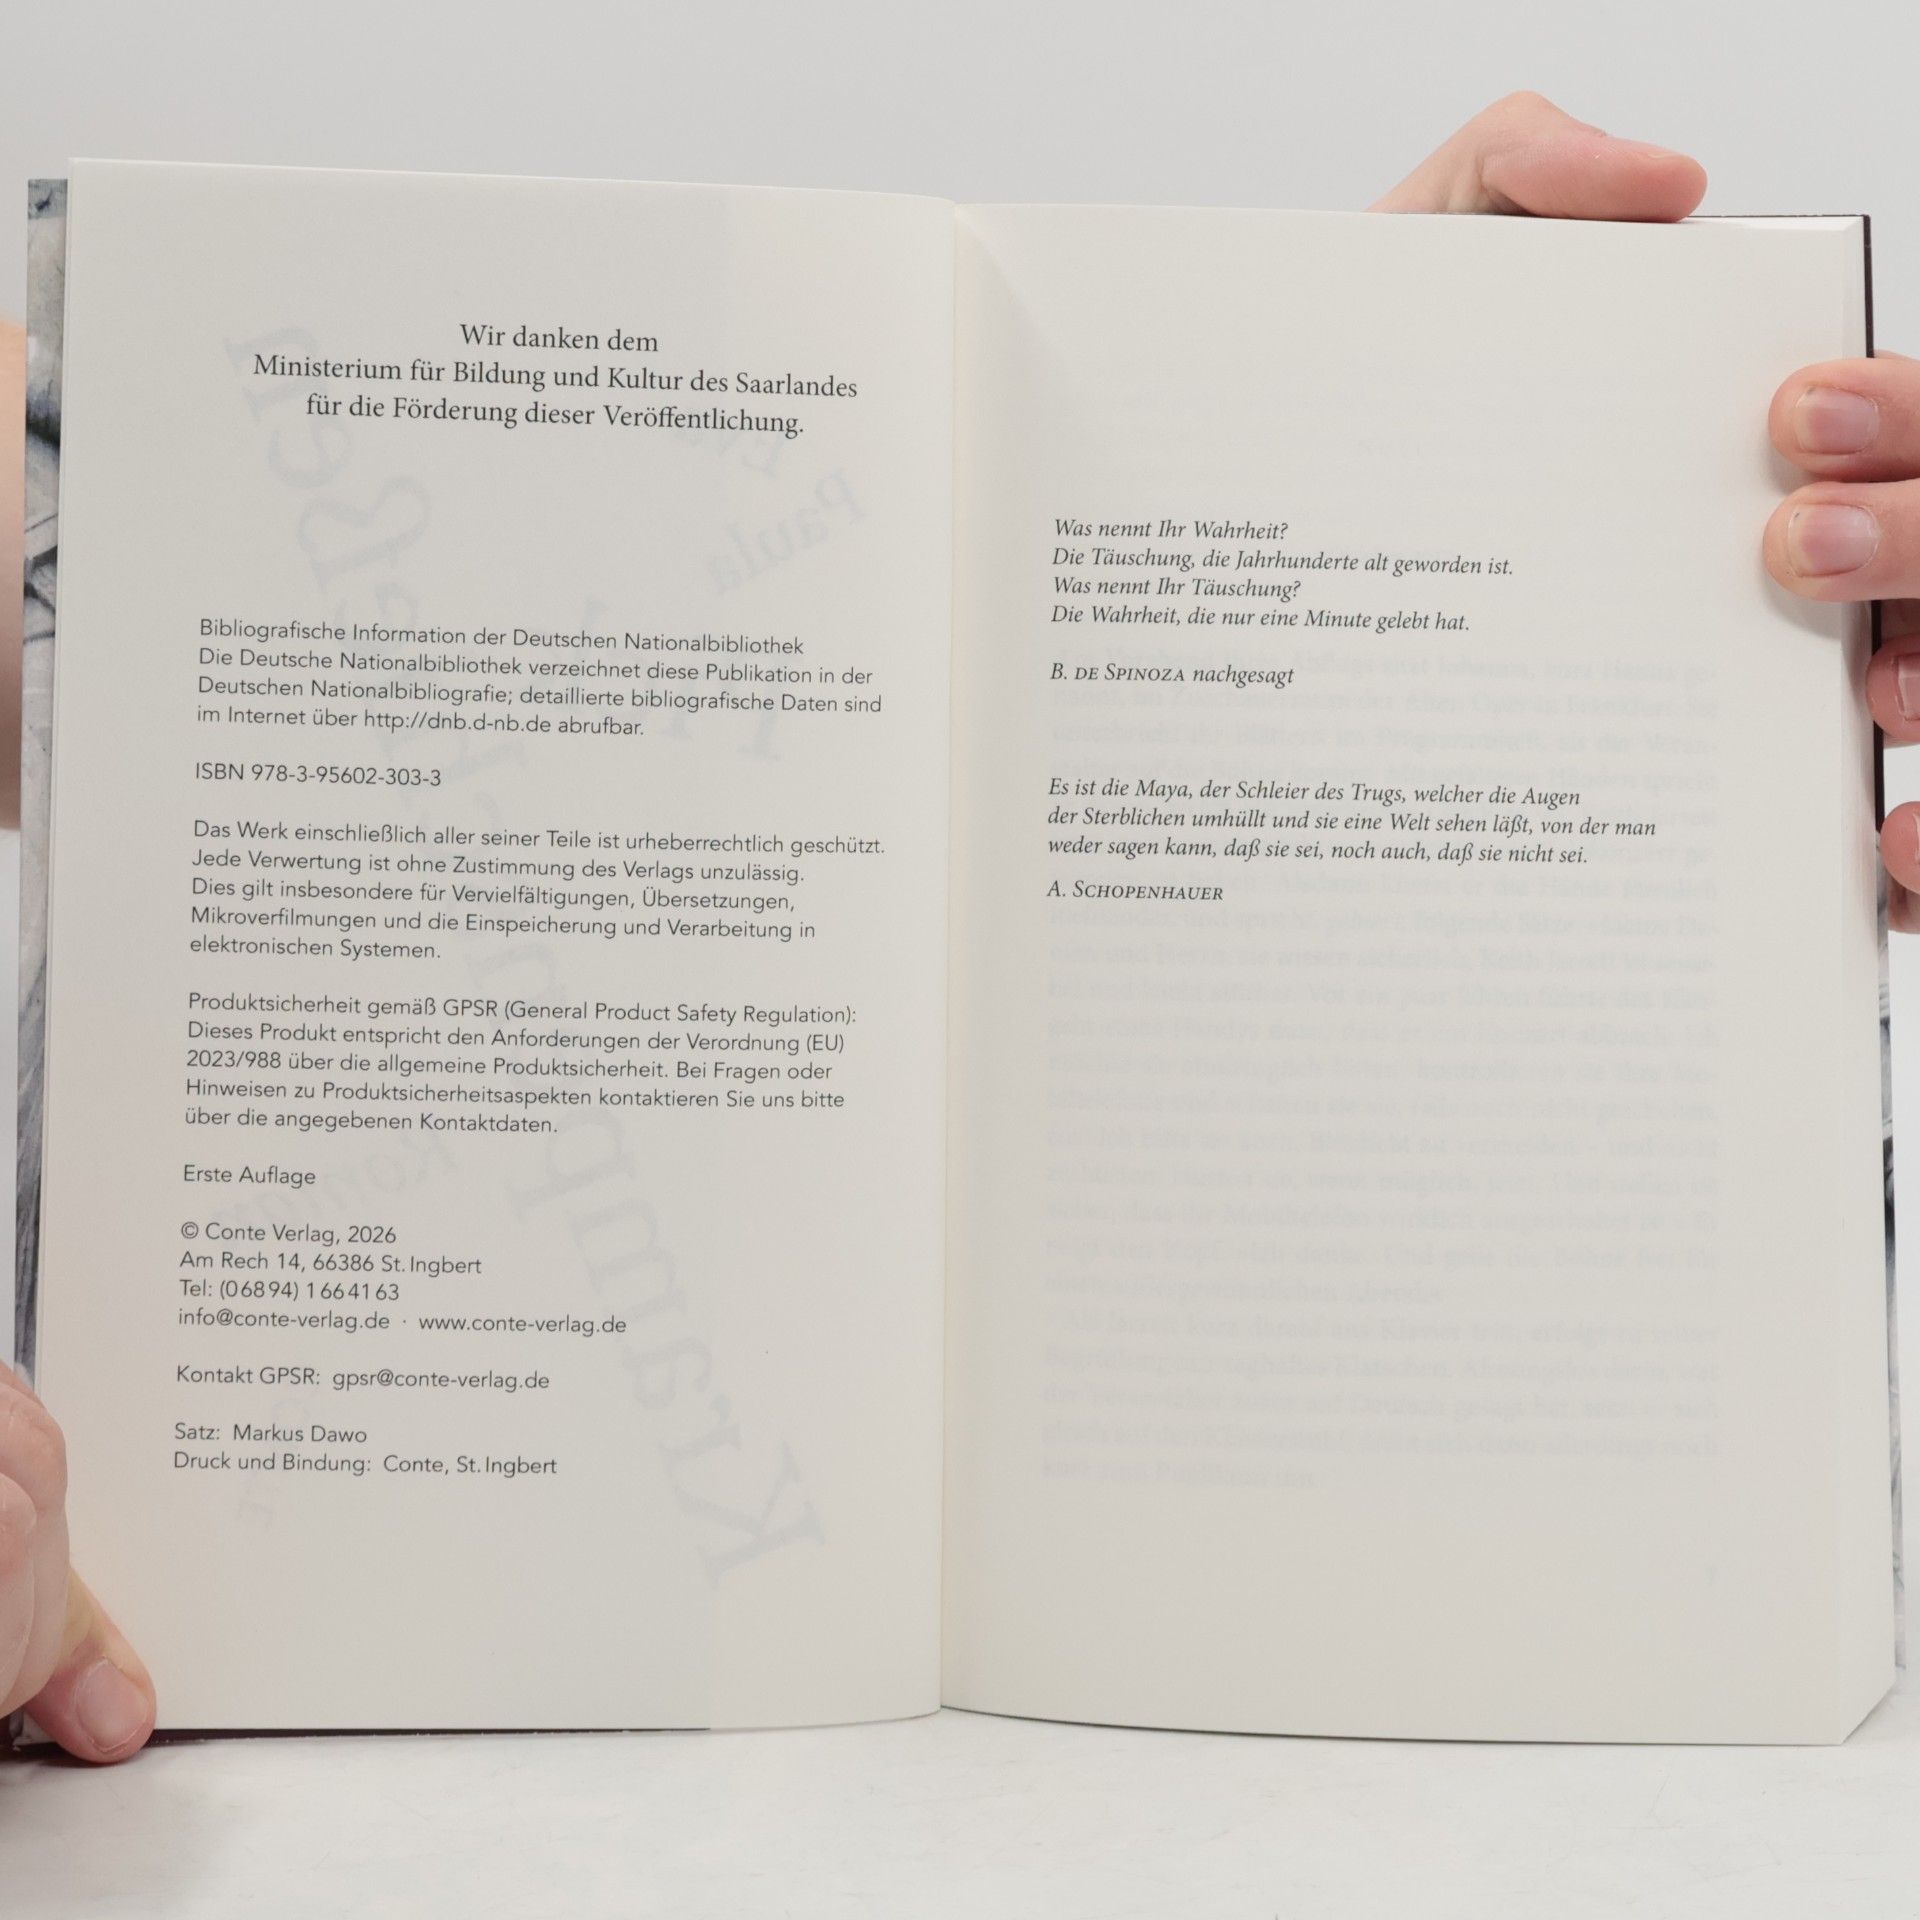 Wir danken dem
Ministerium für Bildung und Kultur des Saarlandes
für die Förderung dieser Veröffentlichung.
Bibliografische Information der Deutschen Nationalbibliothek
Die Deutsche Nationalbibliothek verzeichnet diese Publikation in der
Deutschen Nationalbibliografie; detaillierte bibliografische Daten sind
im Internet über http://dnb.d-nb.de abrufbar.
ISBN 978-3-95602-303-3
Das Werk einschließlich aller seiner Teile ist urheberrechtlich geschützt.
Jede Verwertung ist ohne Zustimmung des Verlags unzulässig.
Dies gilt insbesondere für Vervielfältigungen, Übersetzungen,
Mikroverfilmungen und die Einspeicherung und Verarbeitung in
elektronischen Systemen.
Produktsicherheit gemäß GPSR (General Product Safety Regulation):
Dieses Produkt entspricht den Anforderungen der Verordnung (EU)
2023/988 über die allgemeine Produktsicherheit. Bei Fragen oder
Hinweisen zu Produktsicherheitsaspekten kontaktieren Sie uns bitte
über die angegebenen Kontaktdaten.
Erste Auflage
© Conte Verlag, 2026
Am Rech 14, 66386 St. Ingbert
Tel: (0 68 94) 1 66 41 63
info@conte-verlag.de · www.conte-verlag.de
Kontakt GPSR: gpsr@conte-verlag.de
Satz: Markus Dawo
Druck und Bindung: Conte, St. Ingbert
Was nennt Ihr Wahrheit?
Die Täuschung, die Jahrhunderte alt geworden ist.
Was nennt Ihr Täuschung?
Die Wahrheit, die nur eine Minute gelebt hat.
B. DE SPINOZA nachgesagt
Es ist die Maya, der Schleier des Trugs, welcher die Augen
der Sterblichen umhüllt und sie eine Welt sehen läßt, von der man
weder sagen kann, daß sie sei, noch auch, daß sie nicht sei.
A. SCHOPENHAUER